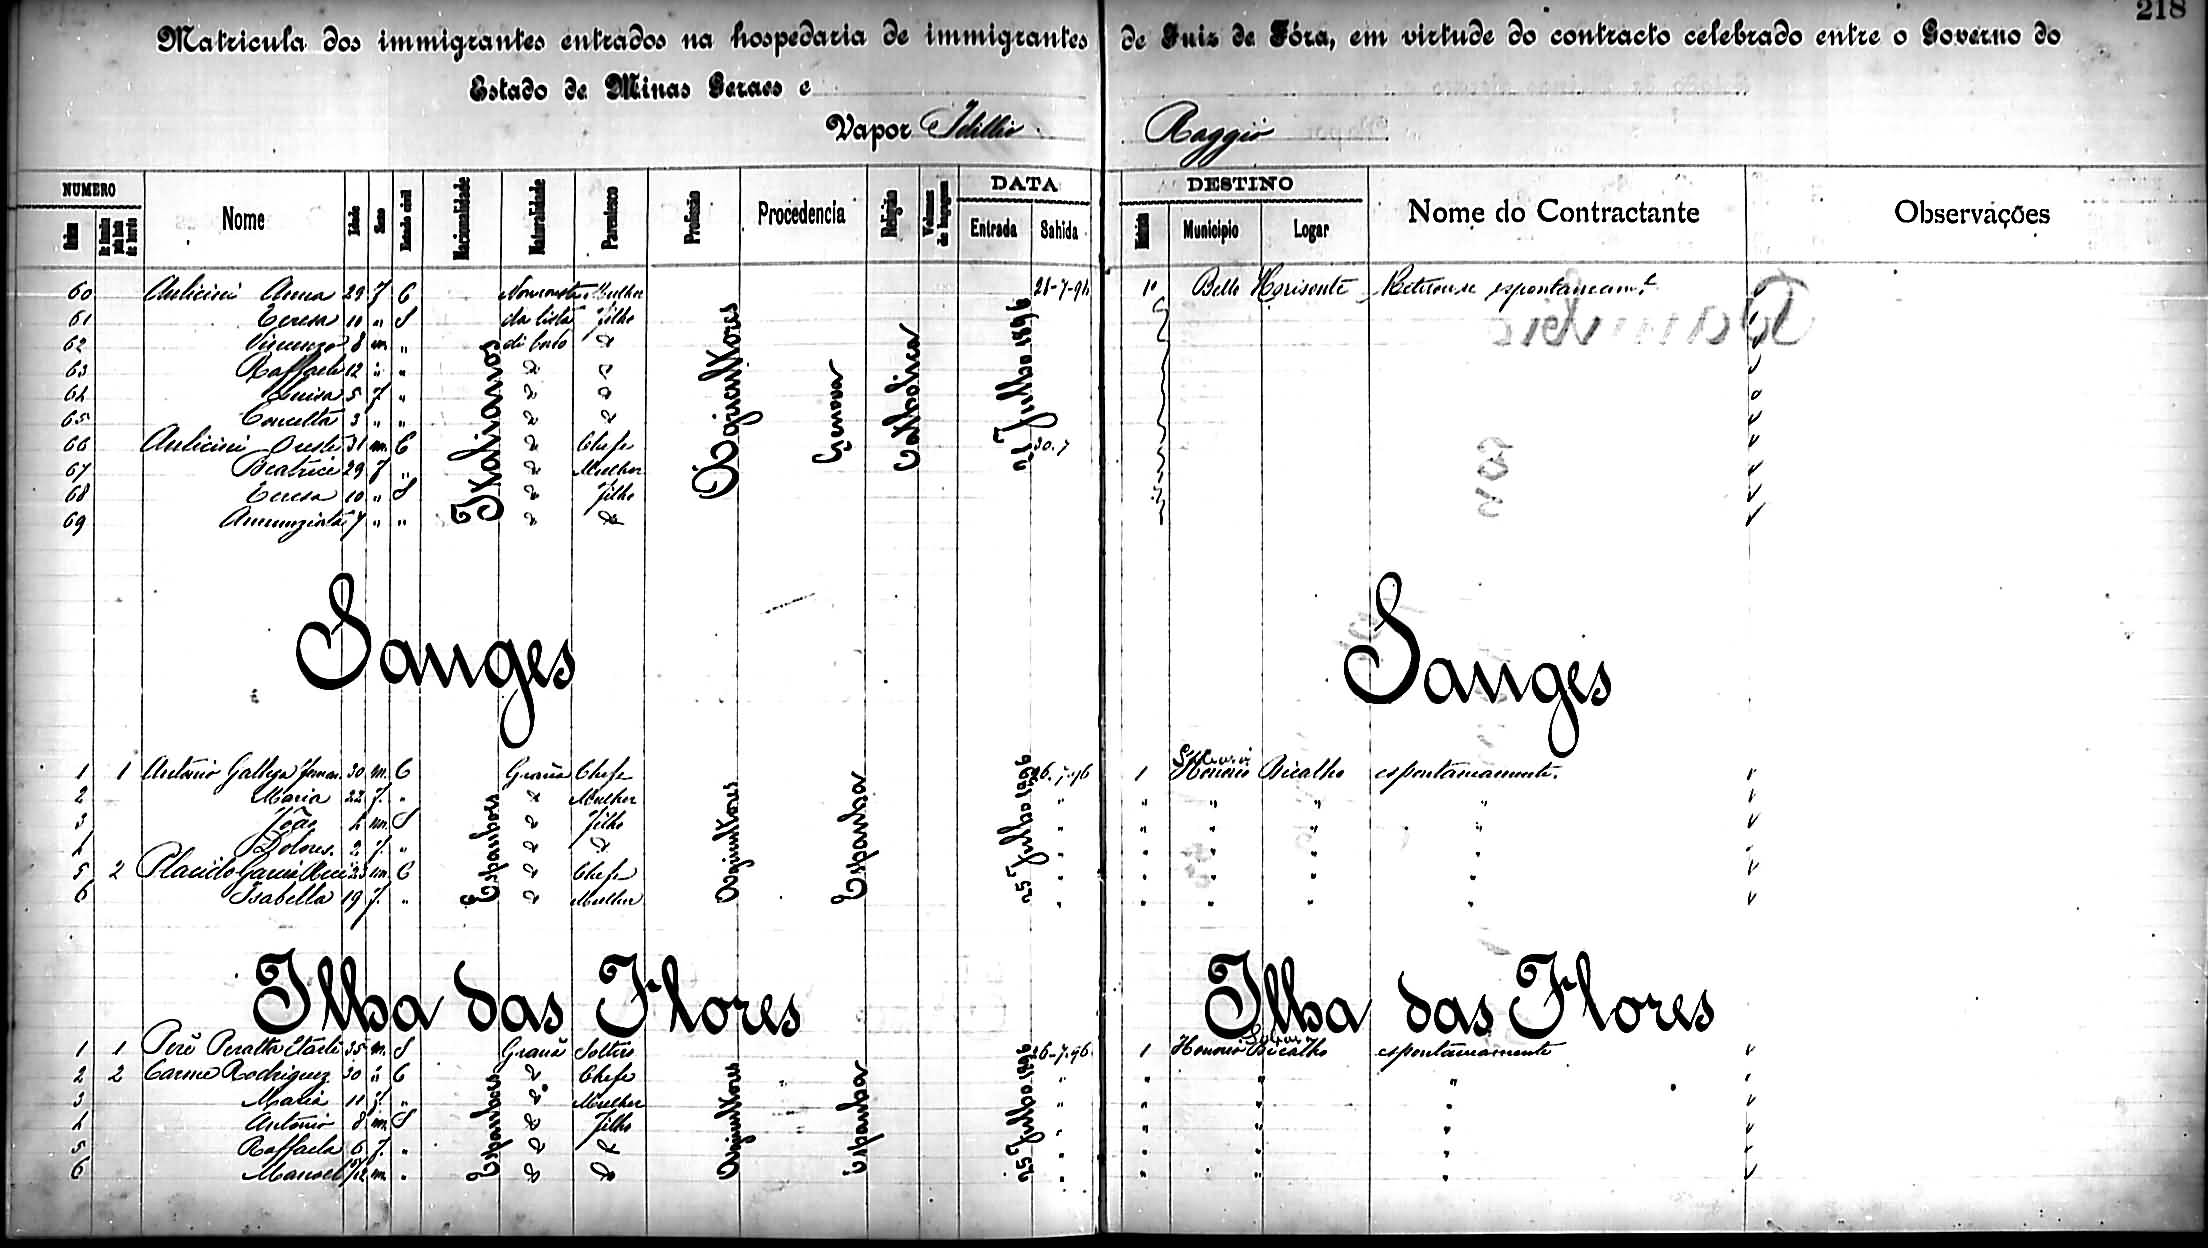 218
Matricula dos immigrantes entrados na hospedaria de immigrantes de Juiz de Fóra, em virtude do contracto celebrado entre o Governo do
Estado de Minas Geraes e
Vapor Idillio Raggio
NUMERO DATA DESTINO
Nome Idade Sexo Estado civil Nacionalidade Naturalidade Parentesco Profissão Procedencia Religião Volumes de bagagem Entrada Sahida Municipio Logar Nome do Contractante Observações
Italianos Agricultores Genova Catholica 25 Julho 1896
60 Anna 29 f C Non consta Mulher 28-7-96 1º Bello Horisonte Retirou-se espontaneamt.
61 Teresa 10 " S da lista Filho
62 Vincenzo 8 m " di bordo
63 Raffaele 12 " "
64 Luisa 5 f "
65 Concetta 3 " "
66 Oreste 31 m C Chefe 30.7
67 Beatrice 29 f " Mulher
68 Teresa 10 " S Filho
69 Annunziata 7 " "
Sanges Sanges
Espanhoes Agricultores Espanha 25 Julho 1896
1 1 Antonio Gallego 30 m. C Chefe 26-7-96 1 Honorio Bicalho espontaneamente.
2 Maria 22 f. " Mulher " " " " "
3 João 4 m. S Filho " " " " "
4 Dolores. 2 f. " " " " " "
5 2 Placido Garcia 23 m. C Chefe " " " " "
6 Isabella 19 f. " Mulher " " " " "
Ilha das Flores Ilha das Flores
Espanhoes Agricultores Espanha 25 Julho 1896
1 1 Peralta 35 m. S Solteiro 26-7-96. 1 Honorio Bicalho espontaneamente
2 2 Carme Rodriguez 30 " C Chefe " " " "
3 Maria 11 f. " Mulher " " " "
4 Antonio 8 m. S Filho " " " "
5 Raffaela 6 f. " " " " "
6 Manoel m. " " " " "